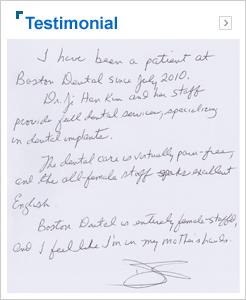 Testimonial
I have been a patient at
Boston Dental since July 2010.
Dr. Ji Han Kim and her staff
provide full dental services, specializing
in dental implants.
The dental care is virtually pain-free,
and the all-female staff speaks excellent
English.
Boston Dental is entirely female-staffed,
and I feel like I'm in my mother's hands.